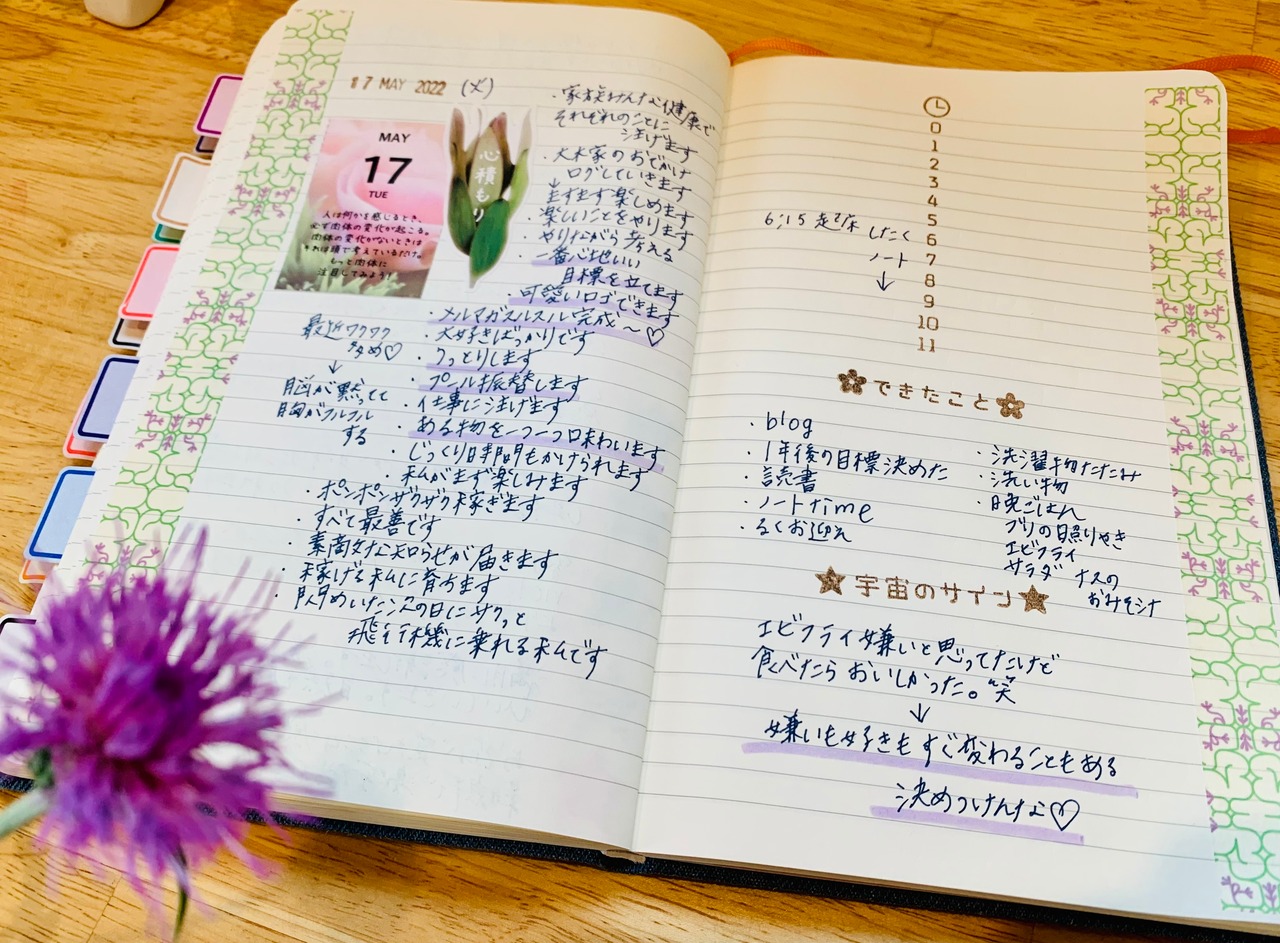 17 MAY 2022 (火)
MAY
17
TUE
人は何かを感じるとき、
必ず肉体の変化が起こる。
肉体の変化がないときは
それは頭で考えているだけ。
もっと肉体に
注目してみよう!
心積もり
最近ワクワク
多め♡
↓
脳が黙ってて
胸がフルフル
する
・家族みんな健康で
それぞれのことに
注げます
・大木家のおでかけ
ログしていきます
↓
ますます楽しめます
・楽しいことをやります
・やりながら考える
・一番心地いい
目標を立てます
・可愛いロゴできます
・メルマガスルスル完成〜♡
・大好きばっかりです
・うっとりします
・プール振替します
・仕事に注げます
・ある物を一つ一つ味わいます
・じっくり時間もかけられます
・私がまず楽しみます
・ポンポンザクザク稼ぎます
・すべて最善です
・素敵なお知らせが届きます
・稼げる私に育ちます
・閃めいた次の日にサクッと
飛行機に乗れる私です
0
1
2
3
4
5
6:15 起床 したく 6
ノート 7
↓ 8
9
10
11
できたこと
・blog
・1年後の目標決めた
・読書
・ノートtime
・るくお迎え
・洗濯物たたみ
・洗い物
・晩ごはん
ブリの照りやき
エビフライ
サラダ ナスの
おみそシナ
宇宙のサイン
エビフライ嫌いと思ってたけど
食べたらおいしかった。笑
↓
嫌いも好きもすぐ変わることもある
決めつけんな♡